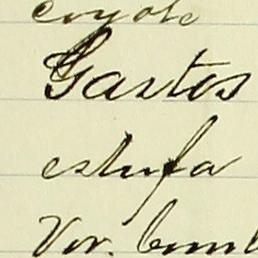 coyote
Gastos
estufa
Vor.